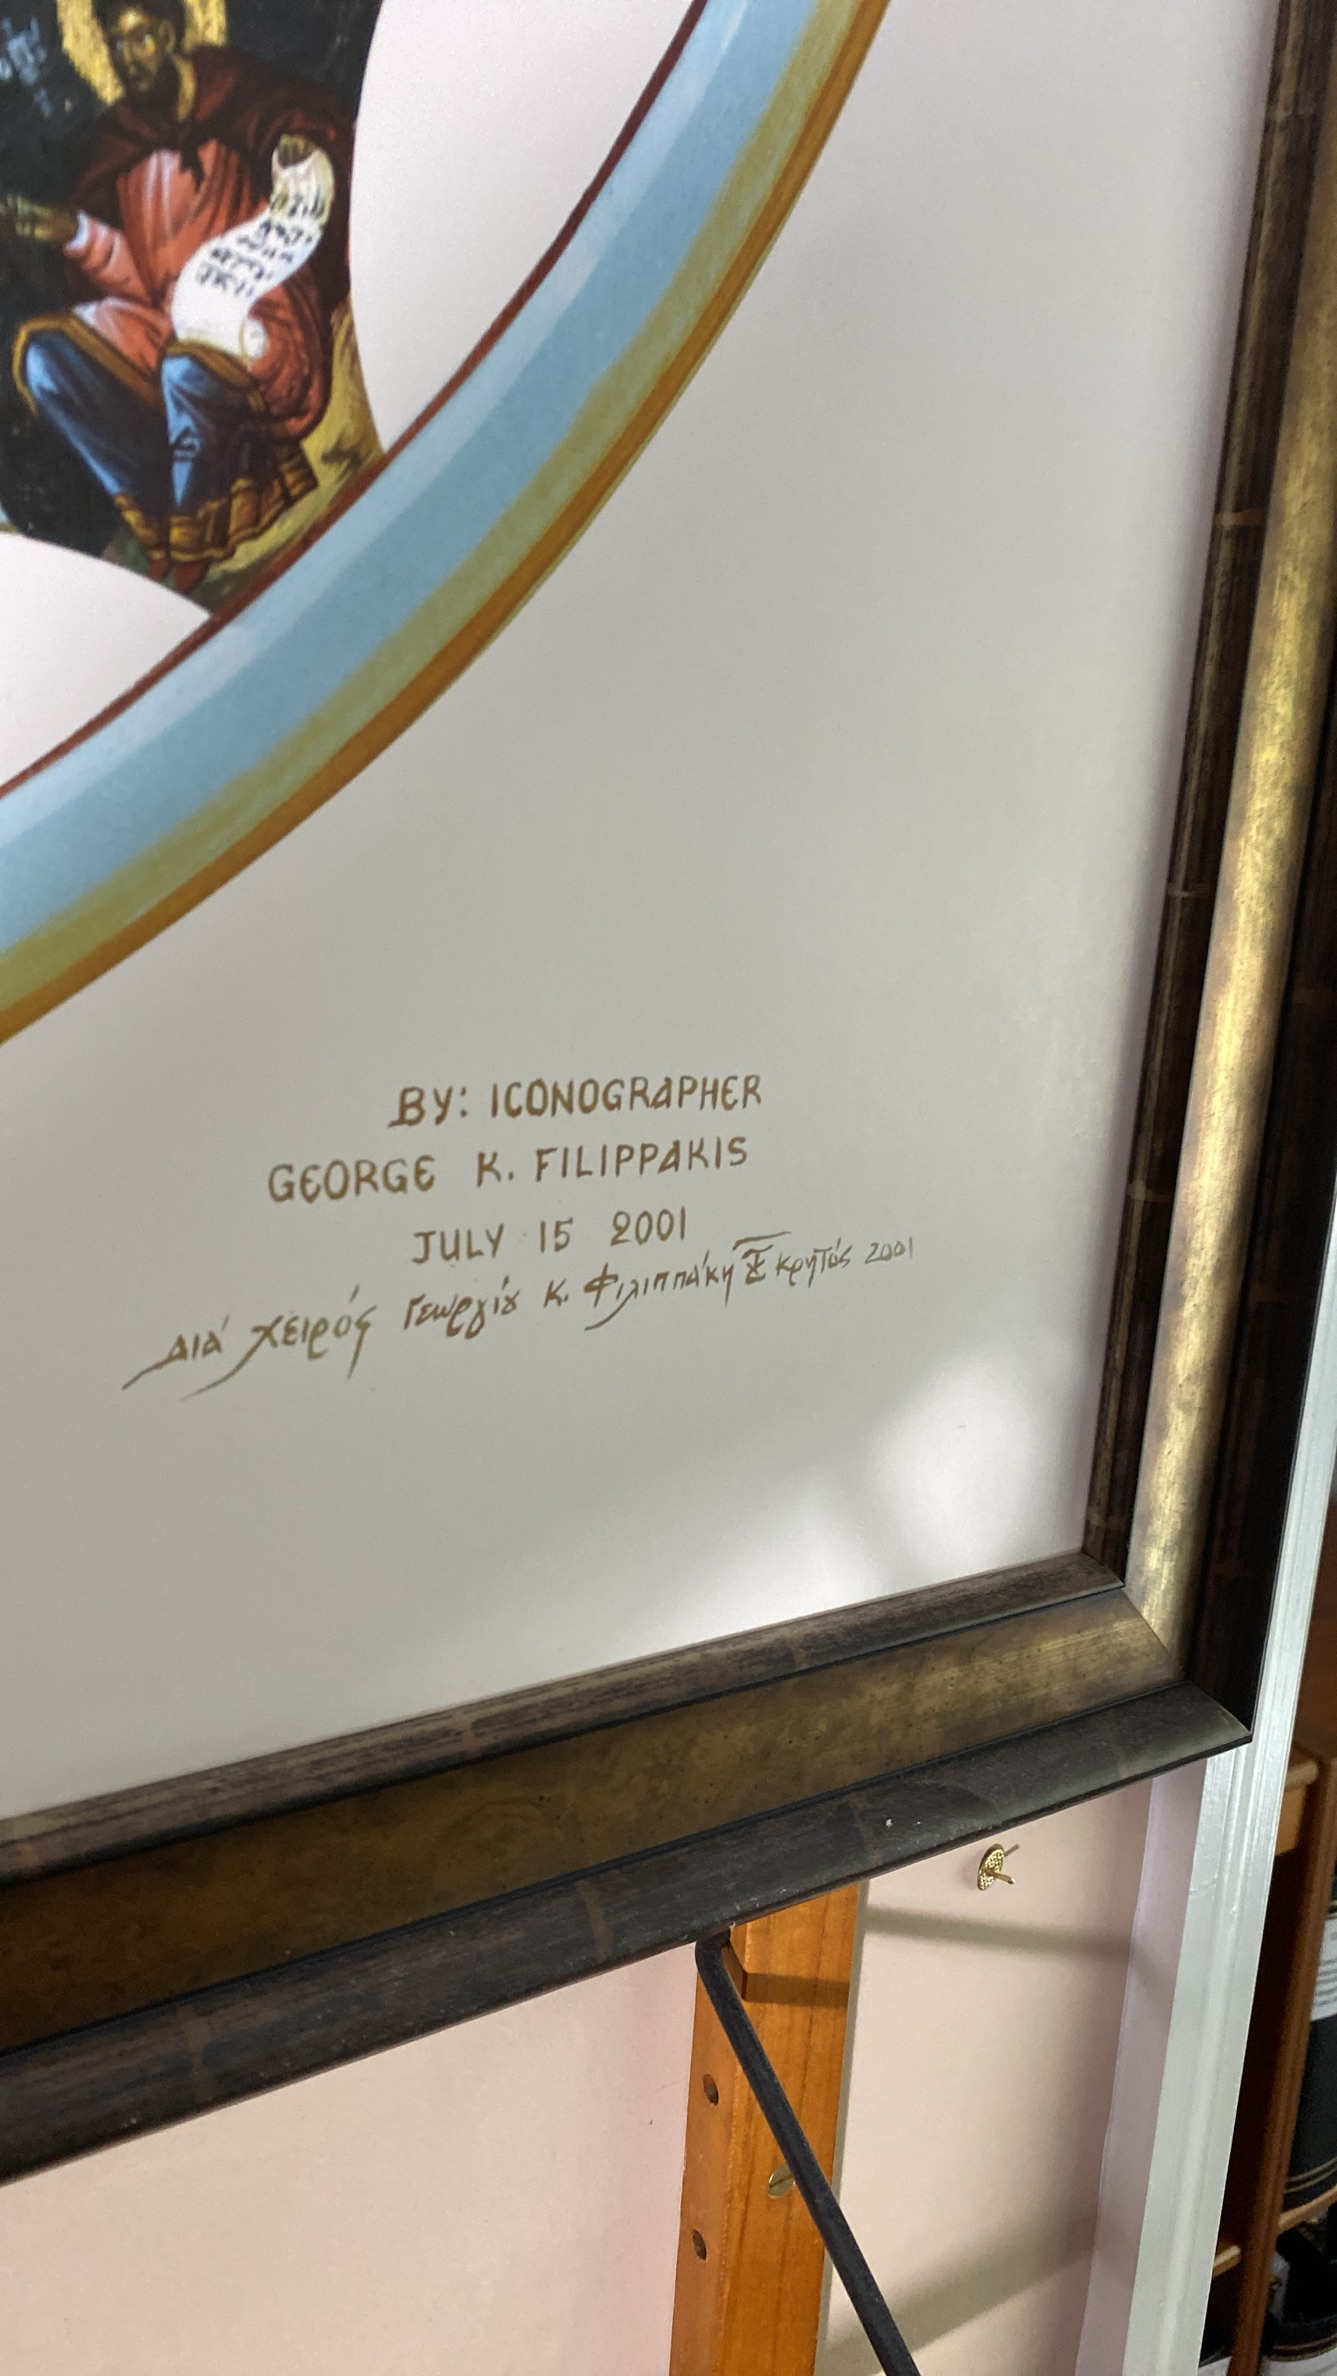 BY: ICONOGRAPHER
GEORGE K. FILIPPAKIS
JULY 15 2001
Διά χειρός Γεωργίου Κ. Φιλιππάκη Κρητός 2001